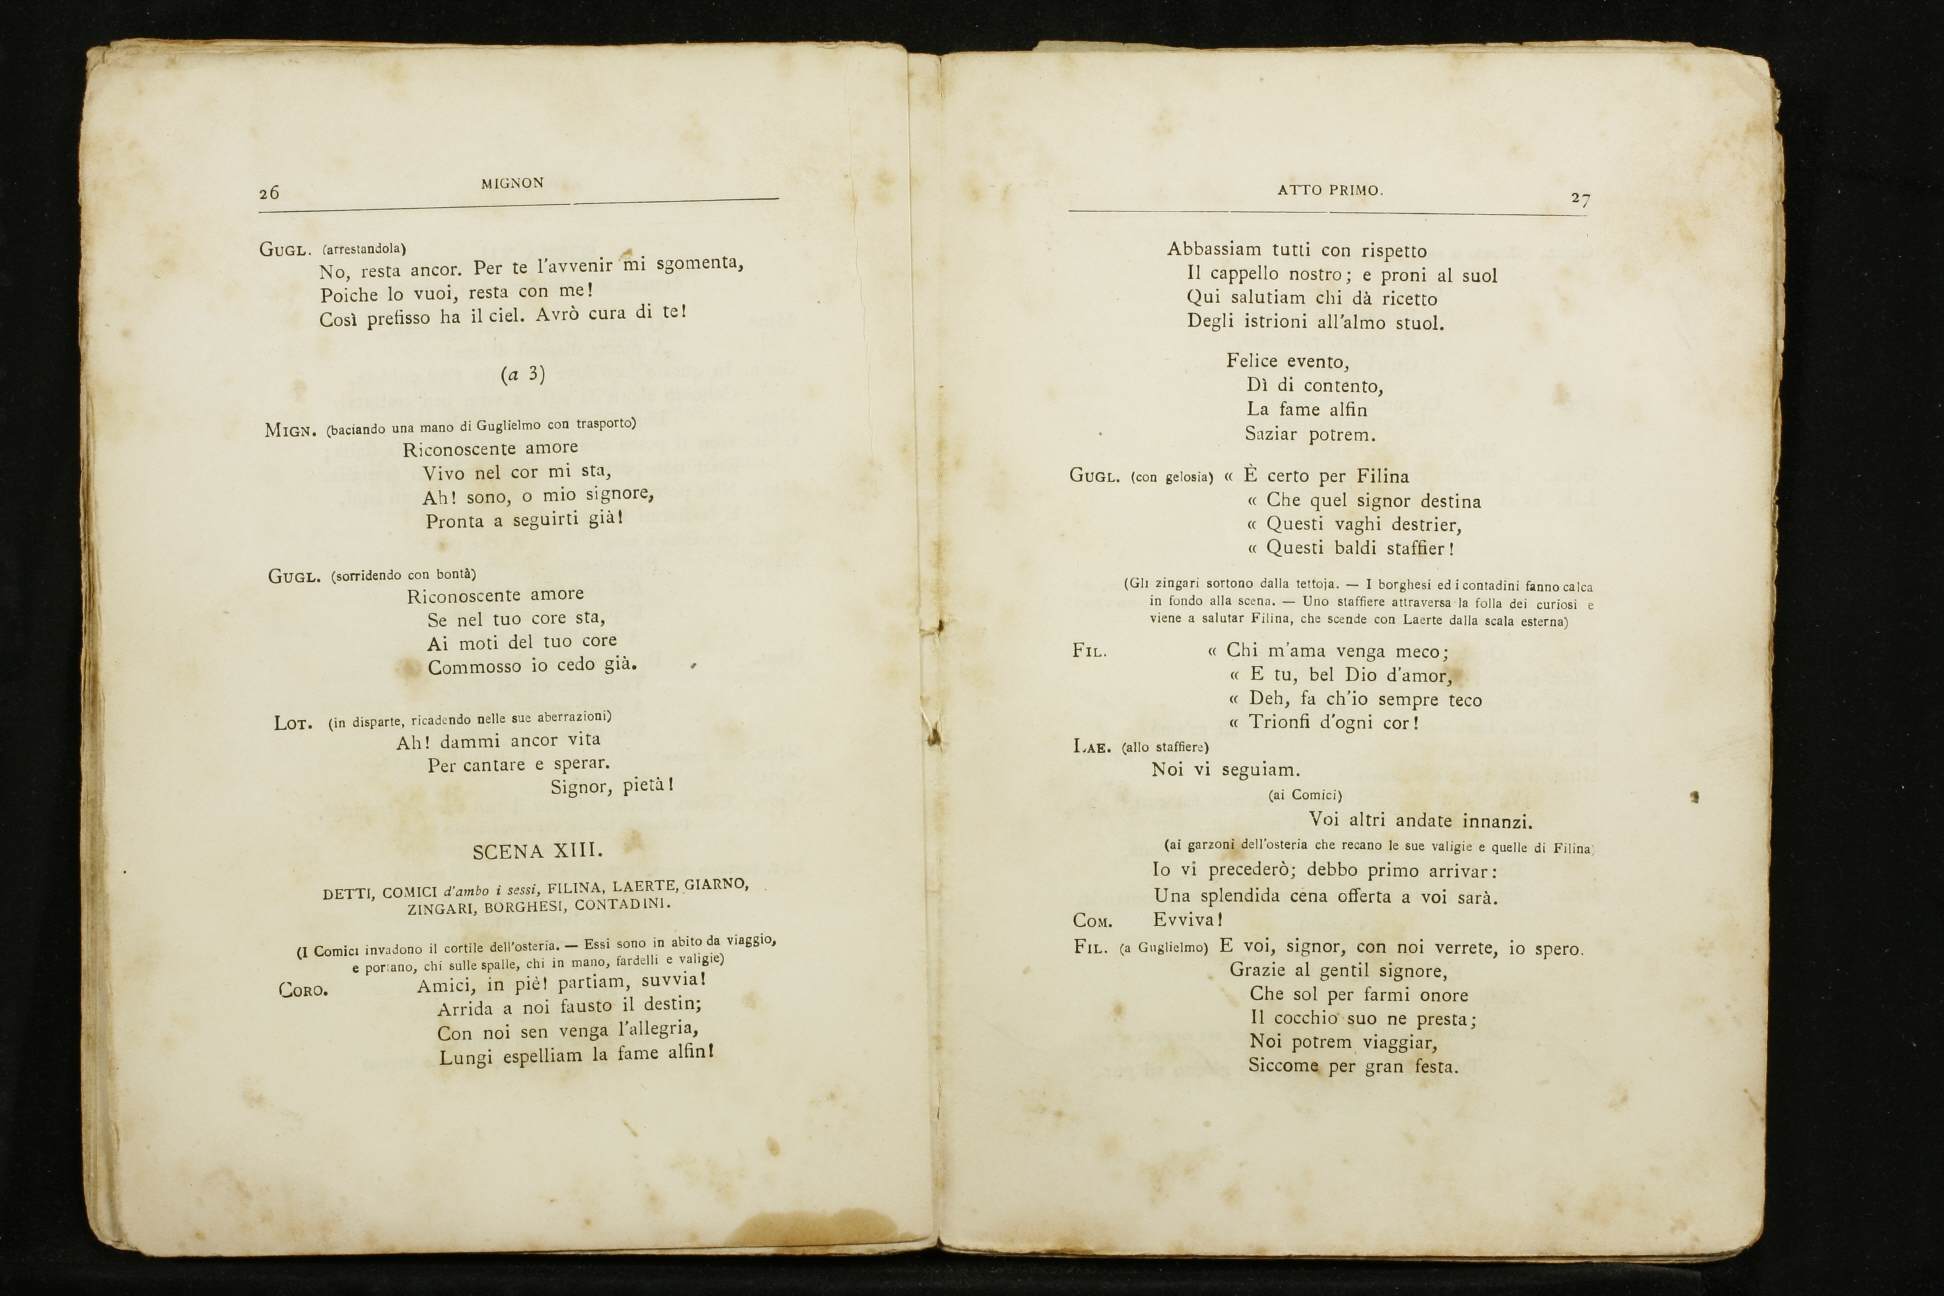 26
MIGNON
GUGL. (arrestandola)
No, resta ancor. Per te l'avvenir mi sgomenta,
Poiche lo vuoi, resta con me!
Così prefisso ha il ciel. Avrò cura di te!
(a 3)
MIGN. (baciando una mano di Guglielmo con trasporto)
Riconoscente amore
Vivo nel cor mi sta,
Ah! sono, o mio signore,
Pronta a seguirti già!
GUGL. (sorridendo con bontà)
Riconoscente amore
Se nel tuo core sta,
Ai moti del tuo core
Commosso io cedo già.
LOT. (in disparte, ricadendo nelle sue aberrazioni)
Ah! dammi ancor vita
Per cantare e sperar.
Signor, pietà!
SCENA XIII.
DETTI, COMICI d'ambo i sessi, FILINA, LAERTE, GIARNO,
ZINGARI, BORGHESI, CONTADINI.
(I Comici invadono il cortile dell'osteria. — Essi sono in abito da viaggio,
e portano, chi sulle spalle, chi in mano, fardelli e valigie)
CORO. Amici, in piè! partiam, suvvia!
Arrida a noi fausto il destin;
Con noi sen venga l'allegria,
Lungi espelliam la fame alfin!
ATTO PRIMO.
27
Abbassiam tutti con rispetto
Il cappello nostro; e proni al suol
Qui salutiam chi dà ricetto
Degli istrioni all'almo stuol.
Felice evento,
Dì di contento,
La fame alfin
Saziar potrem.
GUGL. (con gelosia) « È certo per Filina
« Che quel signor destina
« Questi vaghi destrier,
« Questi baldi staffier!
(Gli zingari sortono dalla tettoja. — I borghesi ed i contadini fanno calca
in fondo alla scena. — Uno staffiere attraversa la folla dei curiosi e
viene a salutar Filina, che scende con Laerte dalla scala esterna)
FIL. « Chi m'ama venga meco;
« E tu, bel Dio d'amor,
« Deh, fa ch'io sempre teco
« Trionfi d'ogni cor!
LAE. (allo staffiere)
Noi vi seguiam.
(ai Comici)
Voi altri andate innanzi.
(ai garzoni dell'osteria che recano le sue valigie e quelle di Filina)
Io vi precederò; debbo primo arrivar:
Una splendida cena offerta a voi sarà.
COM. Evviva!
FIL. (a Guglielmo) E voi, signor, con noi verrete, io spero.
Grazie al gentil signore,
Che sol per farmi onore
Il cocchio suo ne presta;
Noi potrem viaggiar,
Siccome per gran festa.